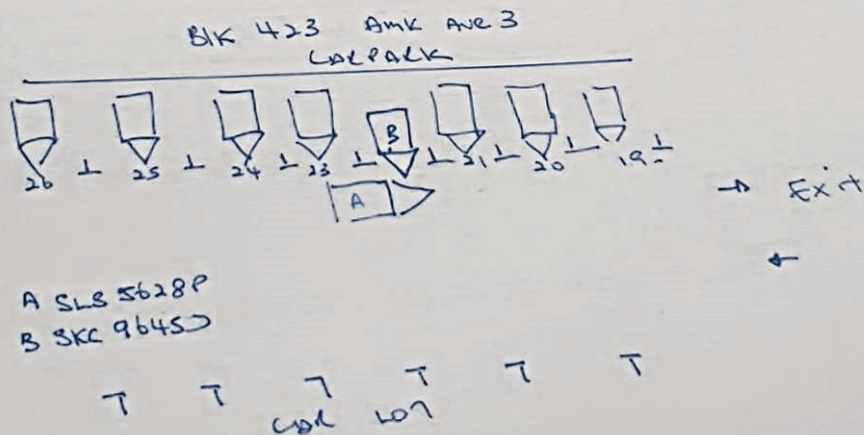 Blk 423 Amk Ave 3
CARPARK
B
26 25 24 23 21 20 19
A
→ Exit
←
A SLS 5628P
B SKC 9645J
CAR LOT